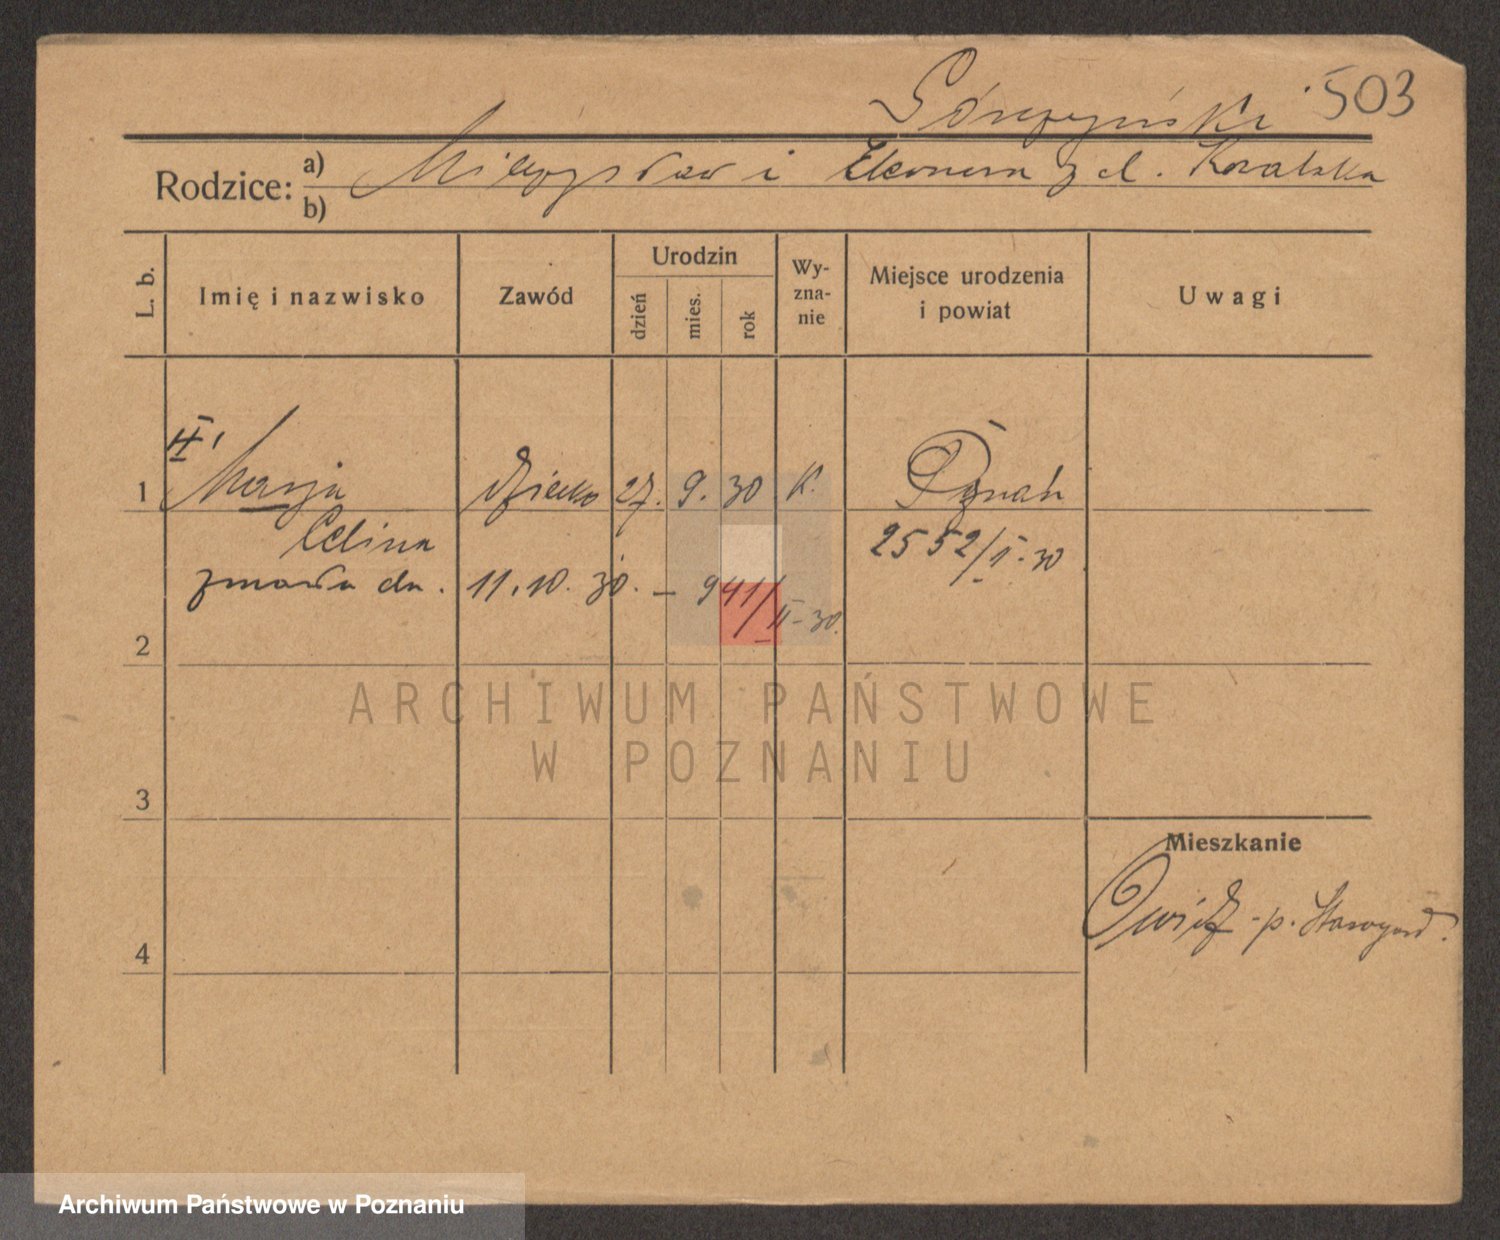 Górczyński 503
Rodzice: a) b) Mieczysław i Eleonora z d. Kowalska
L. b. Imię i nazwisko Zawód Urodzin dzień mies. rok Wy-zna-nie Miejsce urodzenia i powiat Uwagi
II
1 Marja dziecko 27. 9. 30 K. Poznań
Celina 2552/I-30
zmarła dn. 11.10.30. – 941/II-30.
2
ARCHIWUM PAŃSTWOWE
W POZNANIU
3
Mieszkanie
p. Starogard.
4
Archiwum Państwowe w Poznaniu